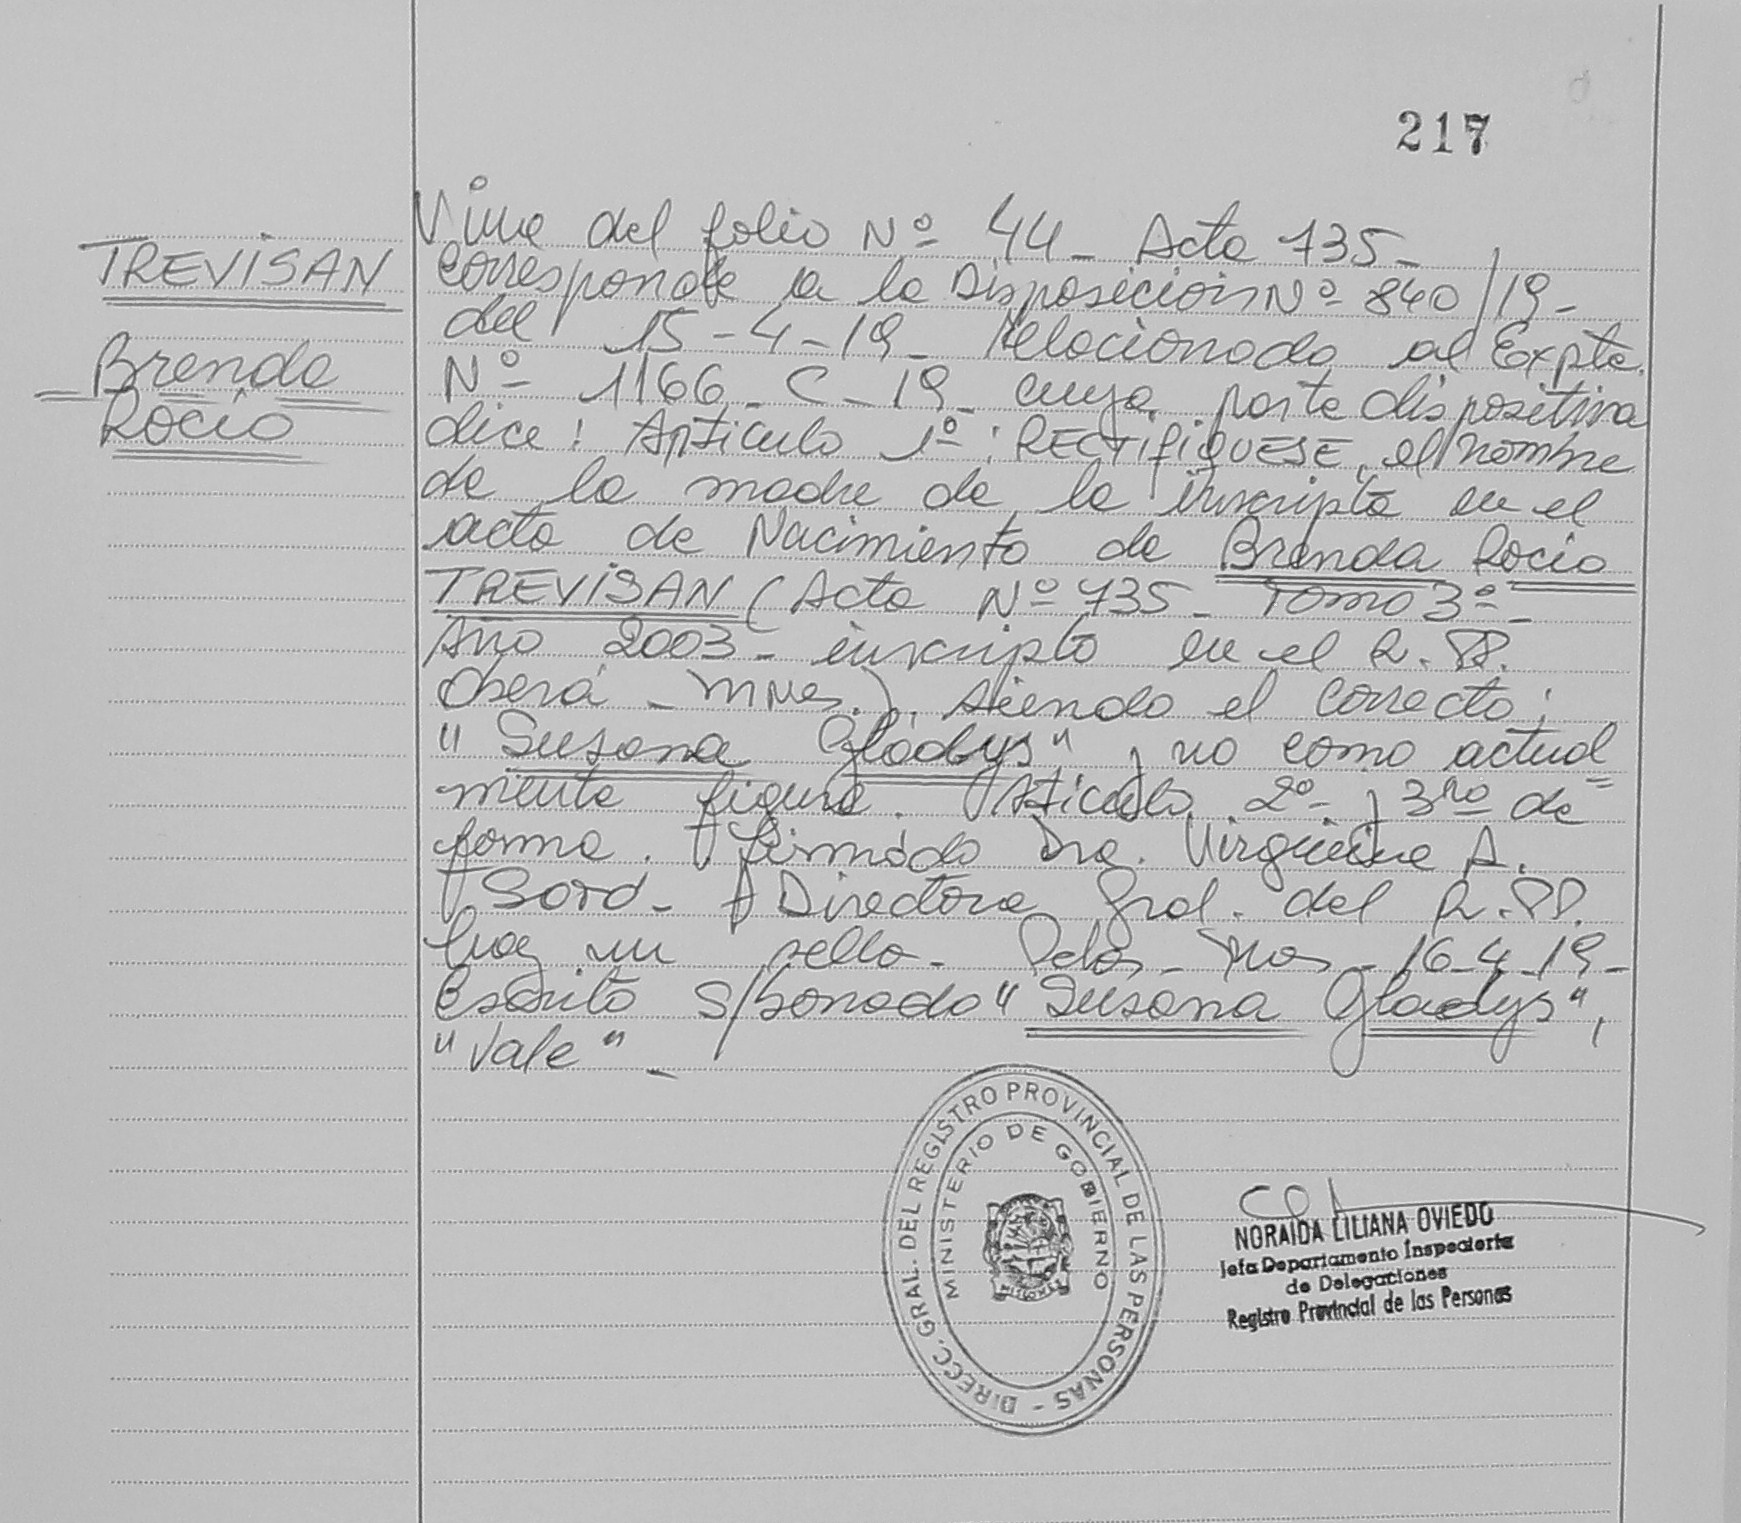 217
TREVISAN
Brenda
Rocío
Viene del folio Nº 44 - Acta 735 -
Corresponde a la Disposición Nº 840/19 -
del 15-4-19 - Relacionada al Expte.
Nº 1166 - C - 19 - cuya parte dispositiva
dice: Artículo 1º: RECTIFIQUESE, el nombre
de la madre de la inscripta en el
acta de Nacimiento de Brenda Rocío
TREVISAN (Acta Nº 735 - Tomo 3º -
Año 2003 - inscripta en el R. PP.
Oberá - Mnes.). siendo el correcto:
"Susana Gladys" y no como actual=
mente figura. Artículo 2º y 3ro de
forma. Firmado Dra. Virginia A.
Soto - Directora Gral. del R. PP.
hay un sello - Pdas - Mnes - 16-4-19 -
Escrito s/borrado "Susana Gladys",
"Vale" -
DIRECC. GRAL. DEL REGISTRO PROVINCIAL DE LAS PERSONAS -
MINISTERIO DE GOBIERNO
MISIONES
NORAIDA LILIANA OVIEDO
Jefa Departamento Inspectoria
de Delegaciones
Registro Provincial de las Personas